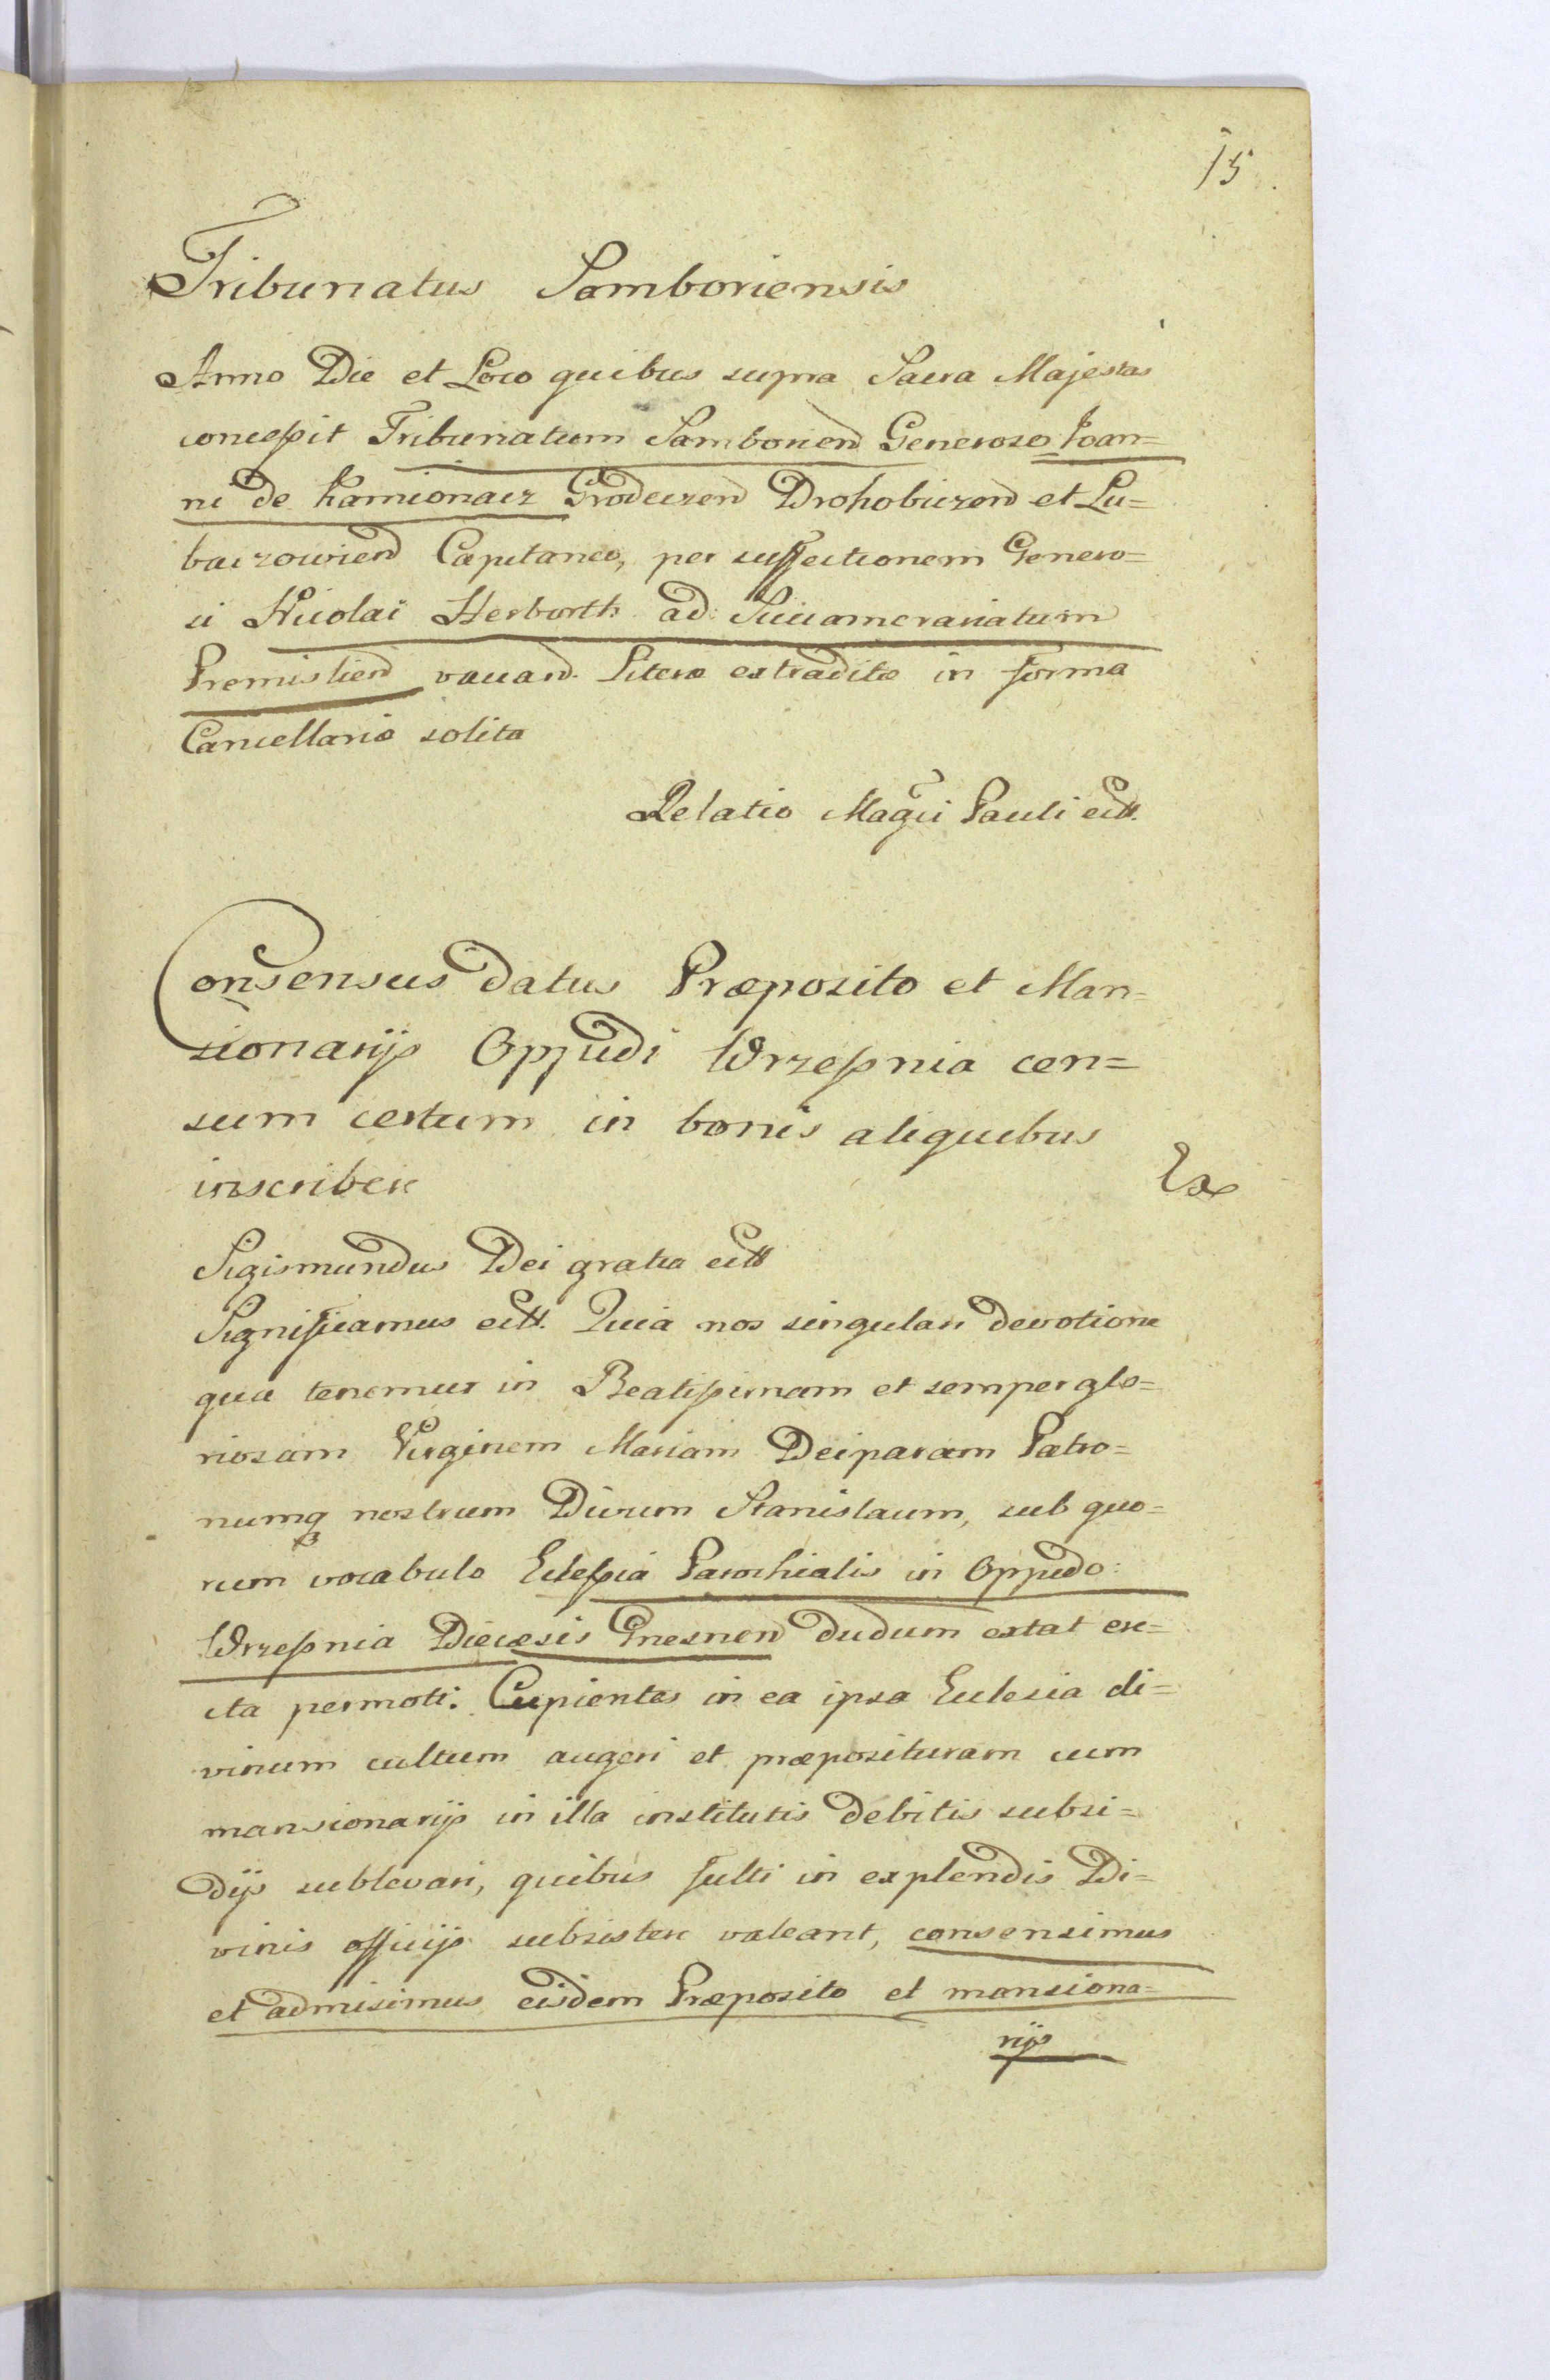 15.
Tribunatus Samboriensis
Anno Die et Loco quibus supra Sacra Majestas
concessit Tribunatum Samborien Generoso Joan=
ni de Kamionacz Grodeczen Drohobiczen et Lu=
baczowien Capitaneo, per suffectionem Genero=
si Nicolai Herborth ad Succamerariatum
Premislien vacan. Literæ extraditæ in forma
Cancellariæ solita
Relatio Magci Pauli ectt.
Consensus datus Præposito et Man=
sionarijs Oppidi Wrzessnia cen=
sum certum in bonis aliquibus
inscribere
Sigismundus Dei gratia ectt
Significamus ectt. Quia nos singulari devotione
qua tenemur in Beatissimam et semper glo=
riosam Virginem Mariam Deiparam Patro=
numq nostrum Divum Stanislaum, sub quo=
rum vocabulo Eclessia Parochialis in Oppido
Wrzessnia Diecæsis Gnesnen dudum extat ere=
cta permoti. Cupientes in ea ipsa Eclesia di=
vinum cultum augeri et præposituram cum
mansionarijs in illa institutis debitis subsi=
dijs sublevari, quibus fulti in explendis Di=
vinis officijs subsistere valeant, consensimus
et admisimus eisdem Præposito et mansiona=
rijs